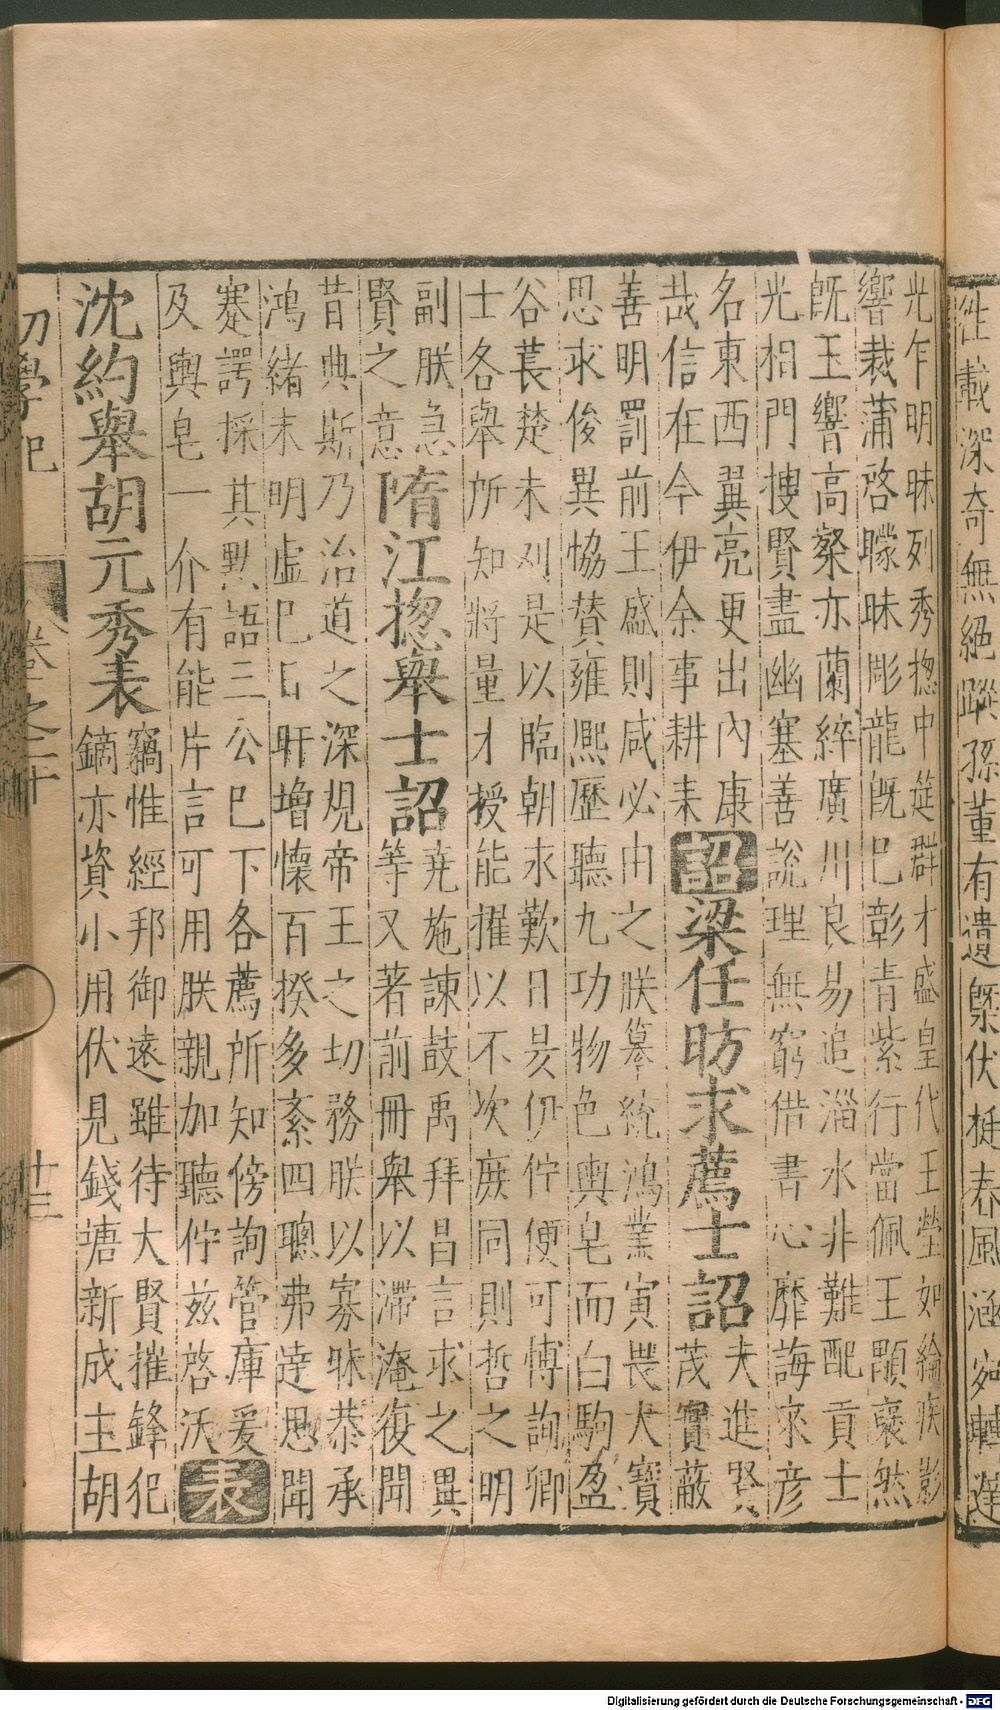 往載深奇無絕蹤孫董有遺槩伏挺春風涵婉轉蓬
光乍明昧列秀揔中筵群才盛皇代王瑩如綸疾影
響裁蒲啓矇昧彫龍旣巳彰青紫行當佩王顯襃然
旣王響高粲亦蘭綷廣川良易追淄水非難配貢士
光相門搜賢盡幽塞善說理無窮借書心靡誨求彦
名東西翼亮更出內康
哉信在今伊余事耕耒
詔梁任昉求薦士詔
夫進賢
茂實蔽
善明罰前王盛則咸必由之朕摹統鴻業寅畏大寶
思求俊異恊賛雍熈歷聽九功物色輿皂而白駒盈
谷萇楚未刈是以臨朝求歎日昃伊佇便可博詢卿
士各舉所知將量才授能擢以不次庻同則哲之明
副朕急
賢之意
隋江揔舉士詔
堯施諫鼓禹拜昌言求之異
等又著前冊舉以滯淹復聞
昔典斯乃治道之深規帝王之切務朕以寡昧恭承
鴻緒未明虛巳日旰增懷百揆多紊四聰弗達思聞
蹇諤採其黙語三公巳下各薦所知傍詢管庫爰
及輿皂一介有能片言可用朕親加聽佇兹啓沃
表
沈約舉胡元秀表
竊惟經邦御遠雖待大賢摧鋒犯
鏑亦資小用伏見錢塘新成主胡
初學記 卷之二十 十三
Digitalisierung gefördert durch die Deutsche Forschungsgemeinschaft - DFG